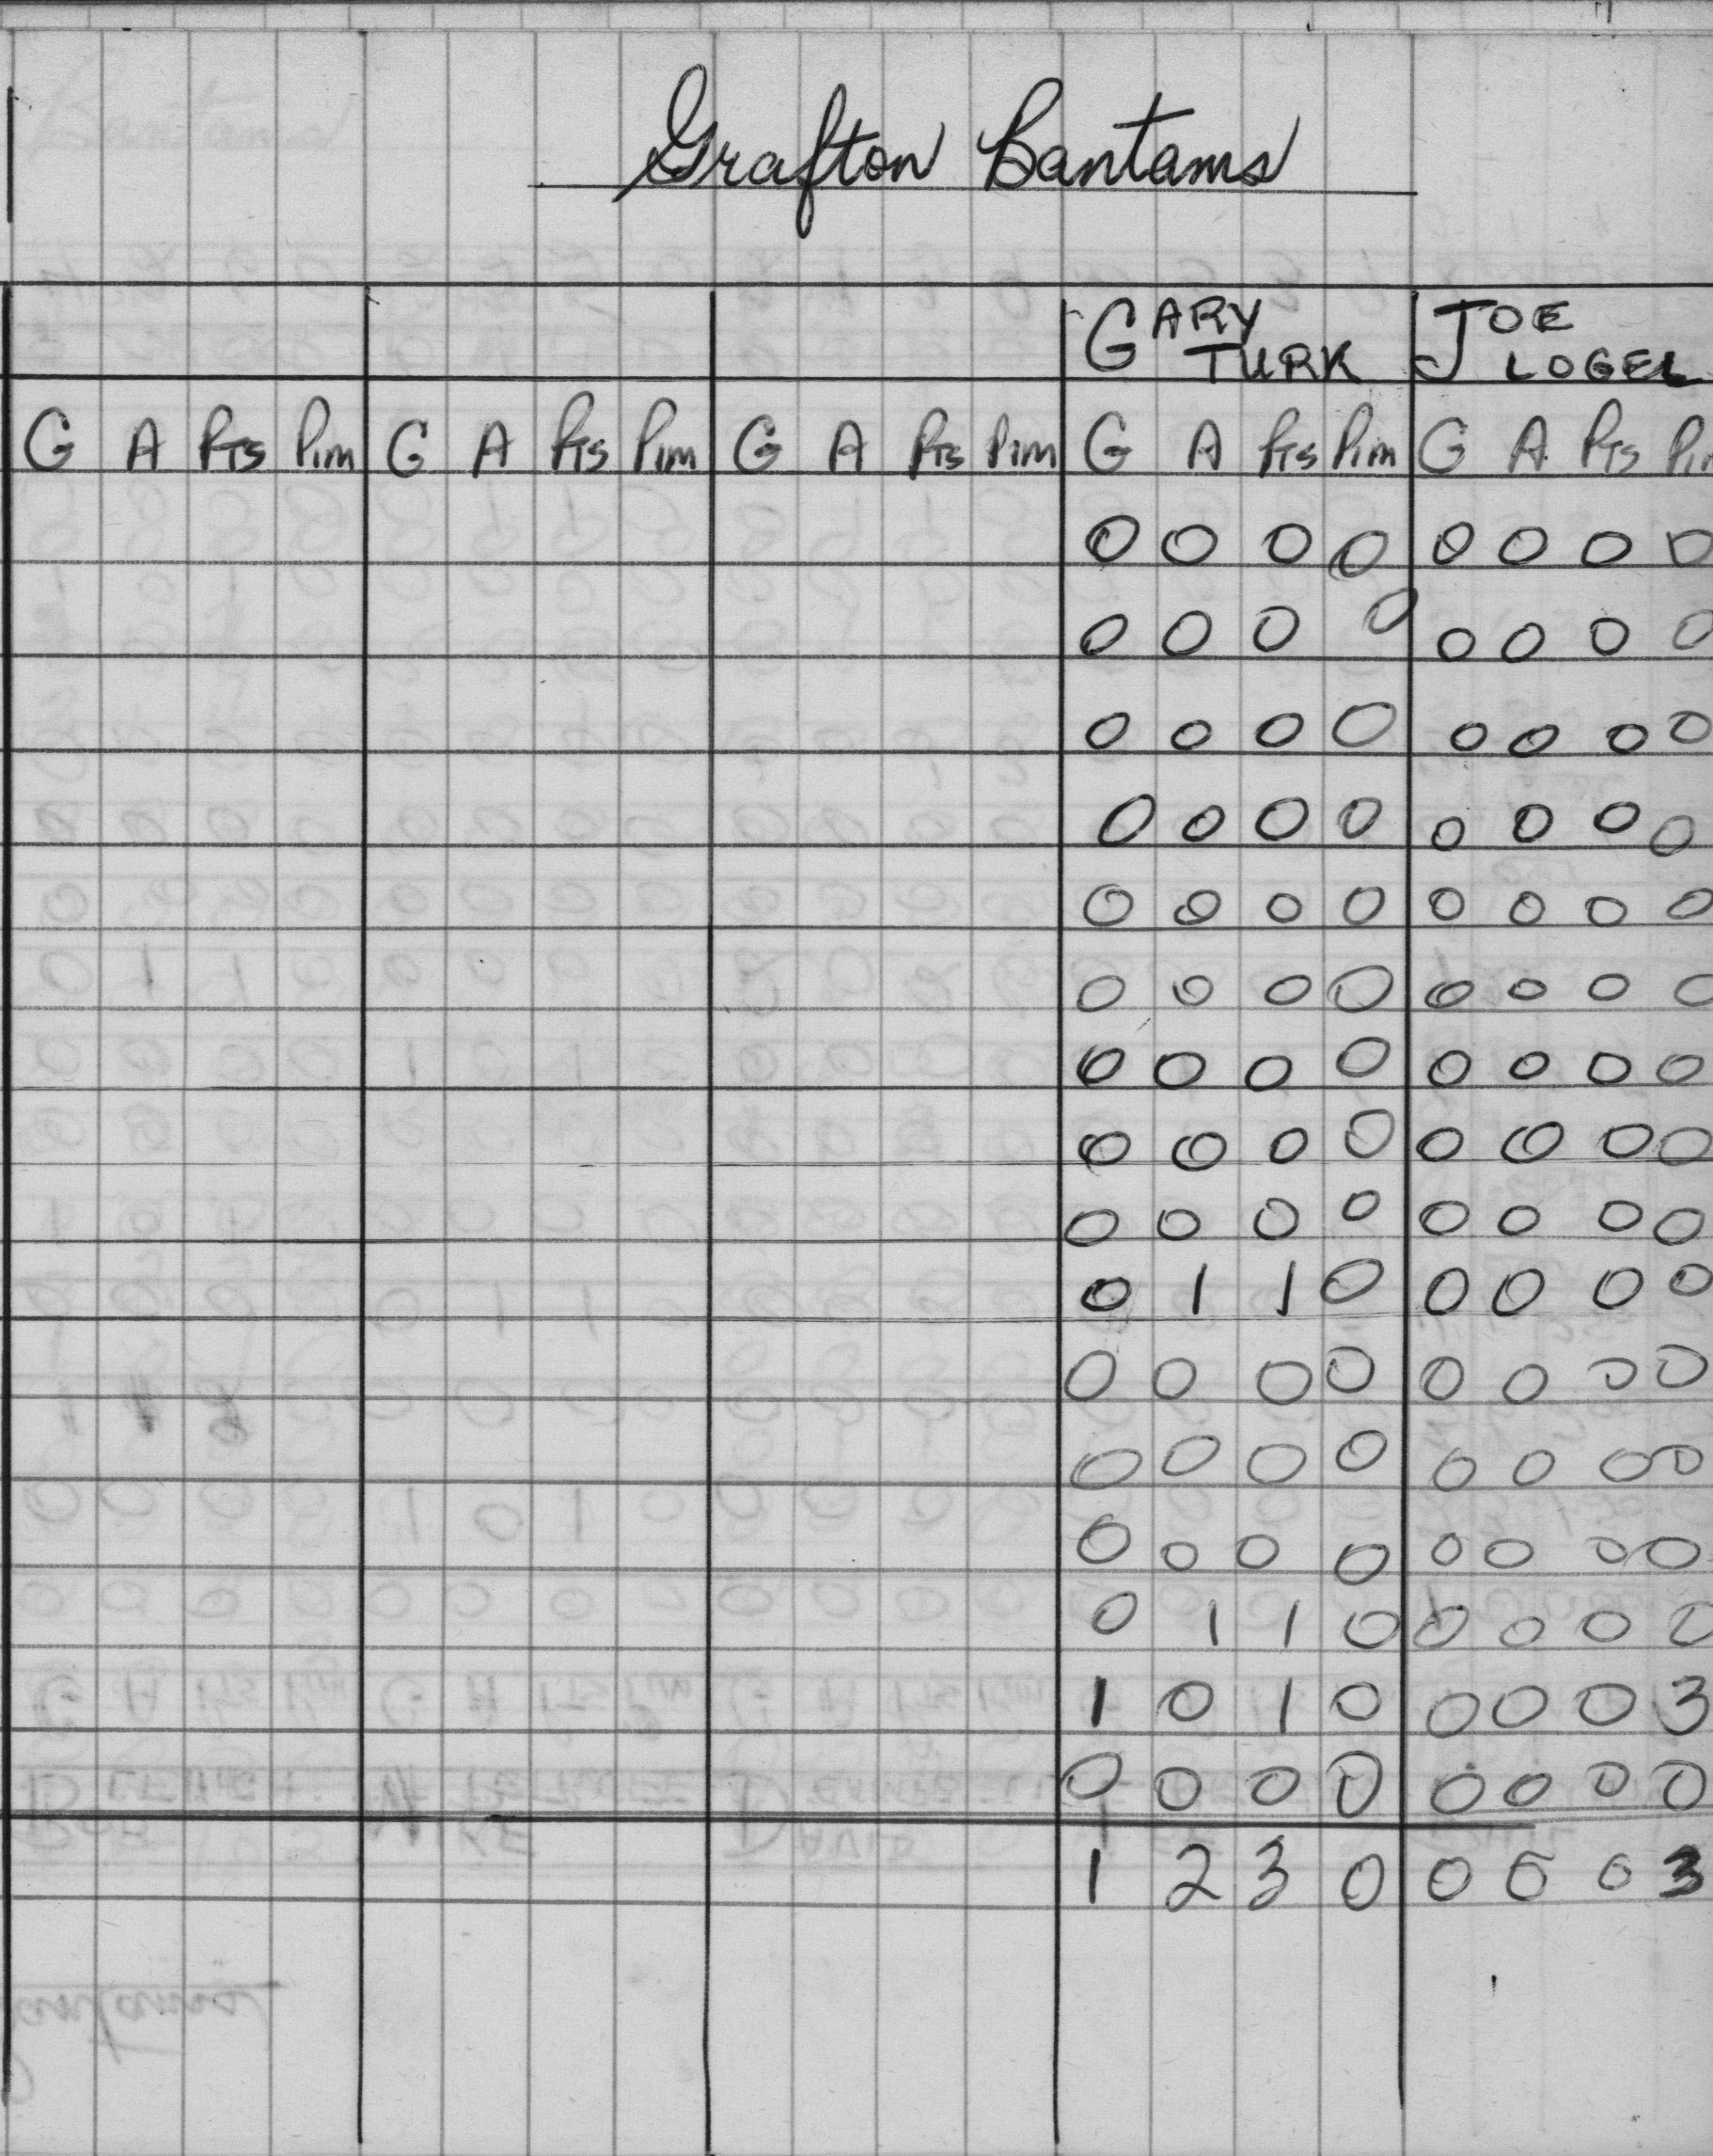 Grafton Bantams
GARY TURK JOE LOGEL
G A Pts Pim G A Pts Pim G A Pts Pim G A Pts Pim G A Pts Pi
0 0 0 0 0 0 0 0
0 0 0 0 0 0 0 0
0 0 0 0 0 0 0 0
0 0 0 0 0 0 0 0
0 0 0 0 0 0 0 0
0 0 0 0 0 0 0 0
0 0 0 0 0 0 0 0
0 0 0 0 0 0 0 0
0 0 0 0 0 0 0 0
0 1 1 0 0 0 0 0
0 0 0 0 0 0 0 0
0 0 0 0 0 0 0 0
0 0 0 0 0 0 0 0
0 1 1 0 0 0 0 0
1 0 1 0 0 0 0 3
0 0 0 0 0 0 0 0
1 2 3 0 0 0 0 3